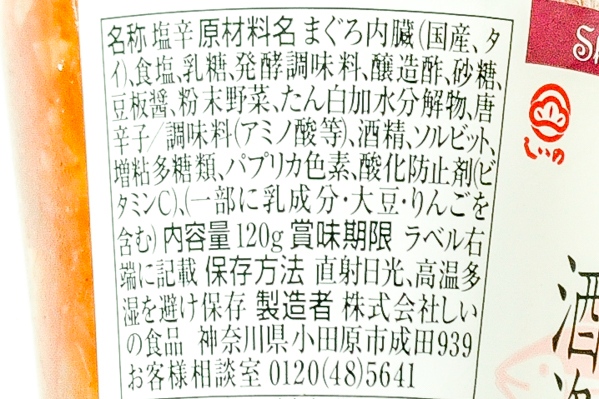 名称 塩辛 原材料名 まぐろ内臓(国産、タ
イ)、食塩、乳糖、発酵調味料、醸造酢、砂糖、
豆板醤、粉末野菜、たん白加水分解物、唐
辛子/調味料(アミノ酸等)、酒精、ソルビット、
増粘多糖類、パプリカ色素、酸化防止剤(ビ
タミンC)、(一部に乳成分・大豆・りんごを
含む) 内容量 120g 賞味期限 ラベル右
端に記載 保存方法 直射日光、高温多
湿を避け保存 製造者 株式会社しい
の食品 神奈川県小田原市成田939
お客様相談室 0120(48)5641
しいの
酒